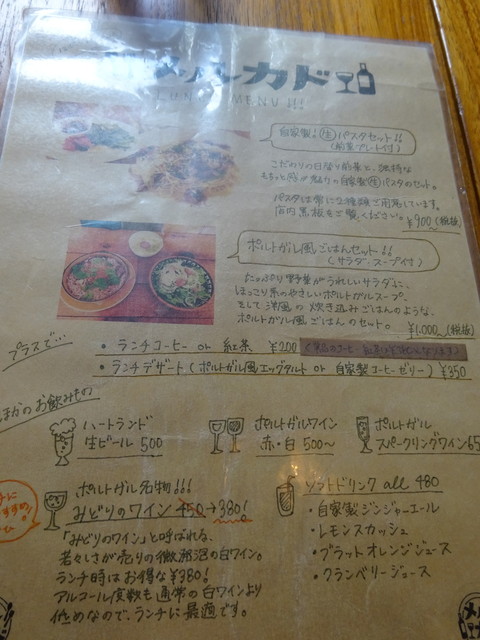 メルカド
LUNCH MENU!!!
自家製!生パスタセット!!
(前菜プレート付)
こだわりの日替り前菜と、独特な
もちっと感が魅力の自家製生パスタのセット。
パスタは常に2種類ご用意しています。
店内黒板をご覧ください。
¥900(税抜)
ポルトガル風ごはんセット!!
(サラダ・スープ付)
たっぷり野菜がうれしいサラダに、
ほっこり系のやさしいポルトガルスープ。
そして洋風の炊き込みごはんのような、
ポルトガル風ごはんのセット。
¥1,000(税抜)
プラスで…
・ランチコーヒー or 紅茶 ¥200
・ランチデザート(ポルトガル風エッグタルト or 自家製コーヒーゼリー) ¥350
ほかのお飲みもの
ハートランド
生ビール 500
ポルトガルワイン
赤・白 500~
ポルトガル
スパークリングワイン 65
ポルトガル名物!!!
みどりのワイン 450→380!
「みどりのワイン」と呼ばれる、
若々しさが売りの微発泡の白ワイン。
ランチ時はお得な¥380!
アルコール度数も通常の白ワインより
低めなので、ランチに最適です。
ソフトドリンク all 480
・自家製ジンジャーエール
・レモンスカッシュ
・ブラッドオレンジジュース
・クランベリージュース